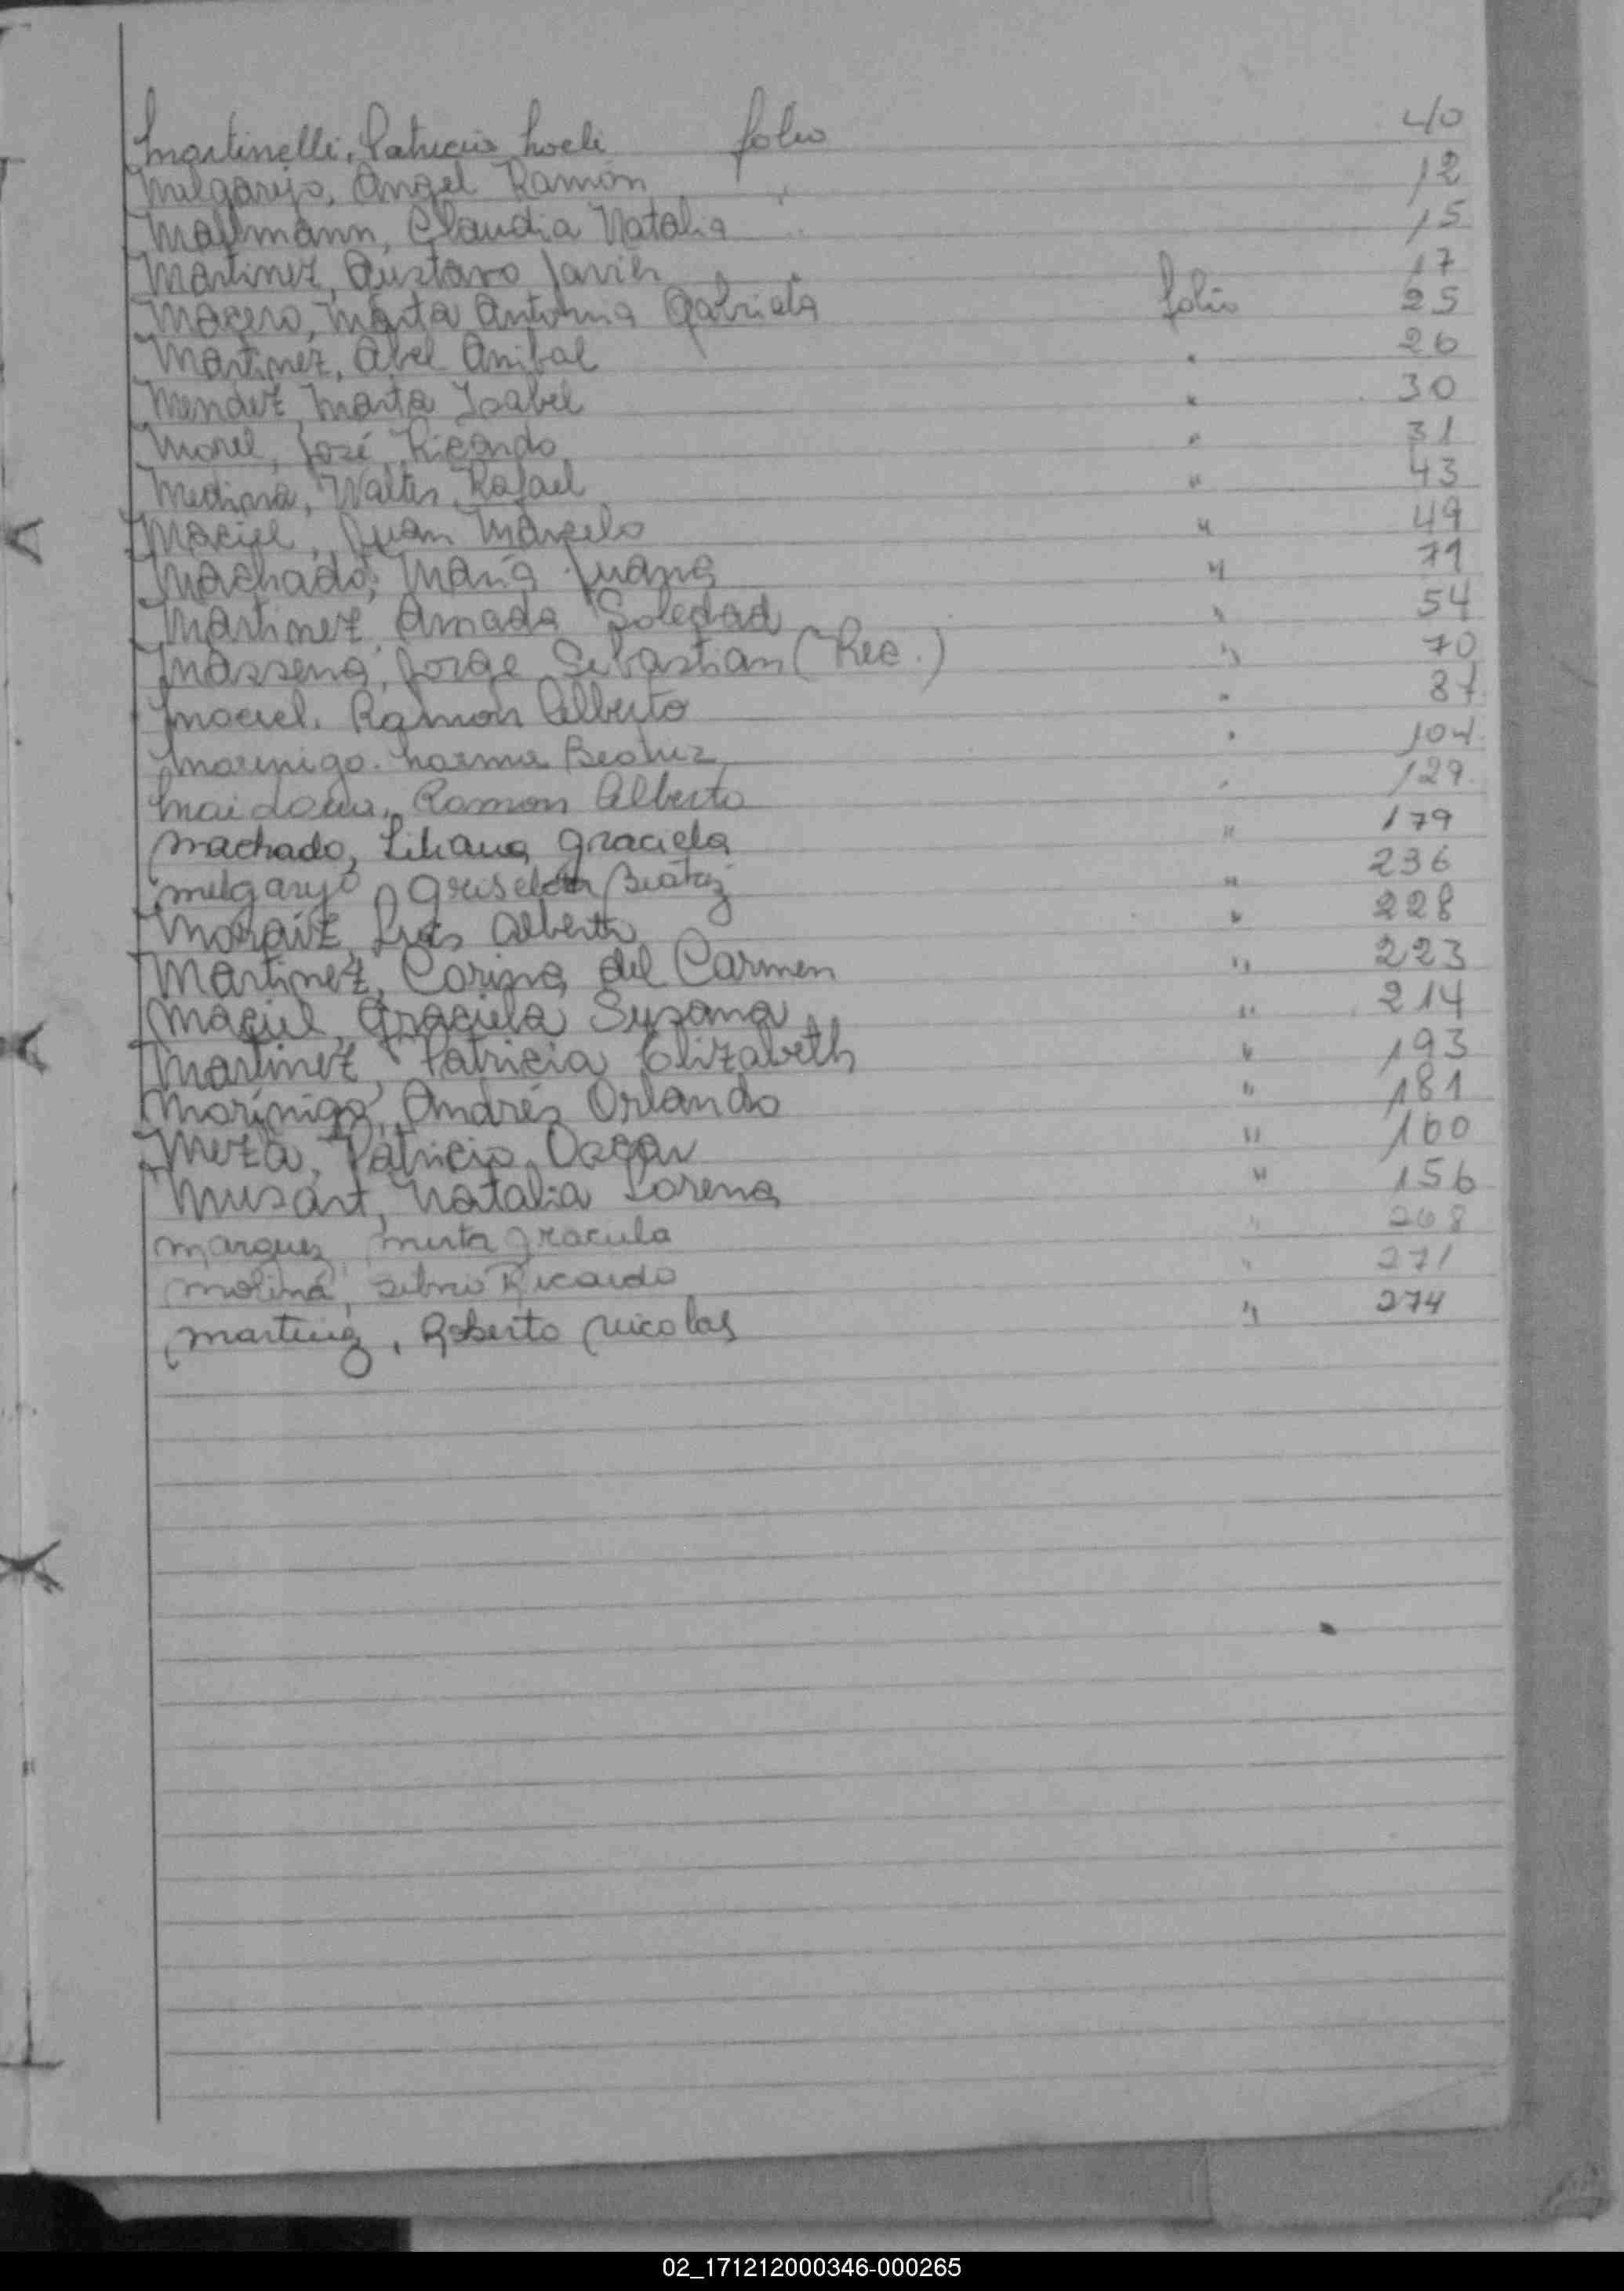 Martinelli, Patricia Noeli folio 40
Melgarejo, Angel Ramón " 12
Mallmann, Claudia Natalia " 15
Martinez, Gustavo Javier 17
Macero, Marta Antonia Gabriela folio 25
Martinez, Abel Anibal " 26
Mendez, Marta Isabel " 30
Morel, José Ricardo " 31
Medina, Walter Rafael " 43
Maciel, Juan Marcelo " 49
Machado, María Juana " 79
Martinez, Amada Soledad " 54
Massena, Jorge Sebastian (Rec.) " 70
Maciel, Ramon Alberto " 87
Morinigo, Norma Beatriz " 104
Maidana, Ramon Alberto " 129
Machado, Liliana Graciela " 179
Melgarejo, Griselda Beatriz " 236
Luis Alberto " 228
Martinez, Corina del Carmen " 223
Maciel, Graciela Susana " 214
Martinez, Patricia Elizabeth " 193
Morínigo, Andrés Orlando " 181
Meza, Patricio Oscar " 160
Musart, Natalia Lorena " 156
Marquez, Mirta Graciela " 268
Molina, Silvio Ricardo " 271
Martinez, Roberto Nicolas " 274
02_171212000346-000265